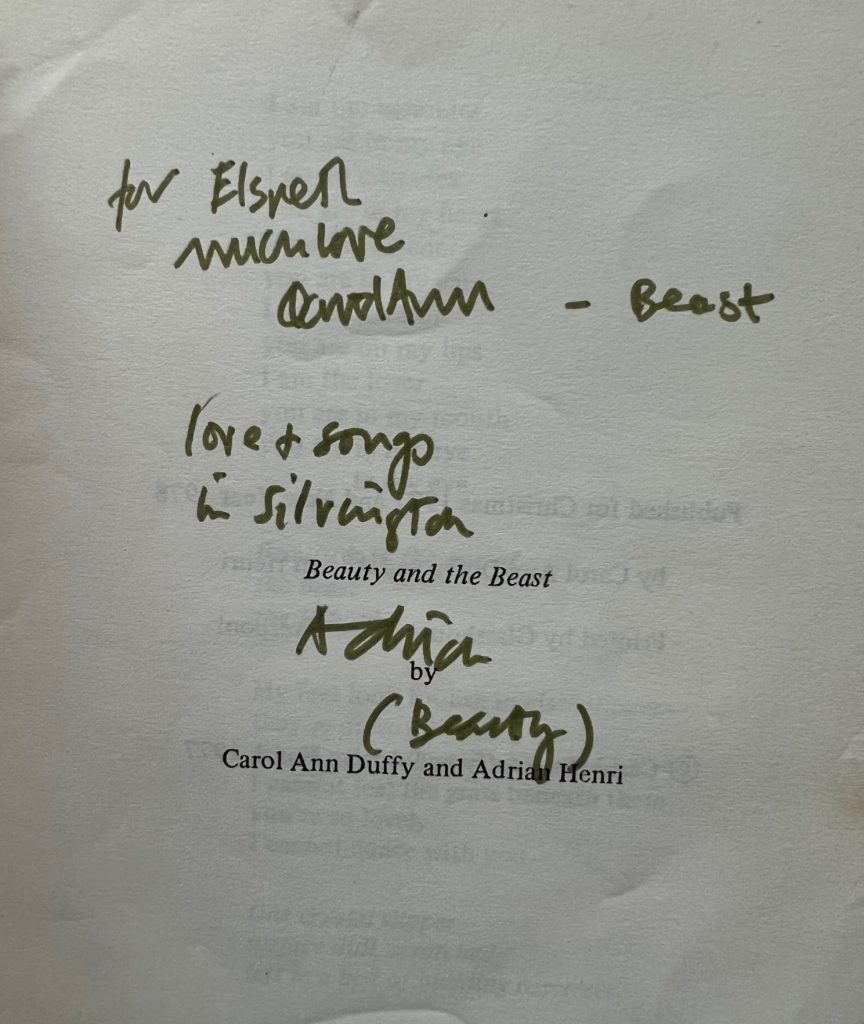 for Elspeth
much love
Carol Ann – Beast
love & songs
in Silvington
Beauty and the Beast
Adrian
by
(Beauty)
Carol Ann Duffy and Adrian Henri